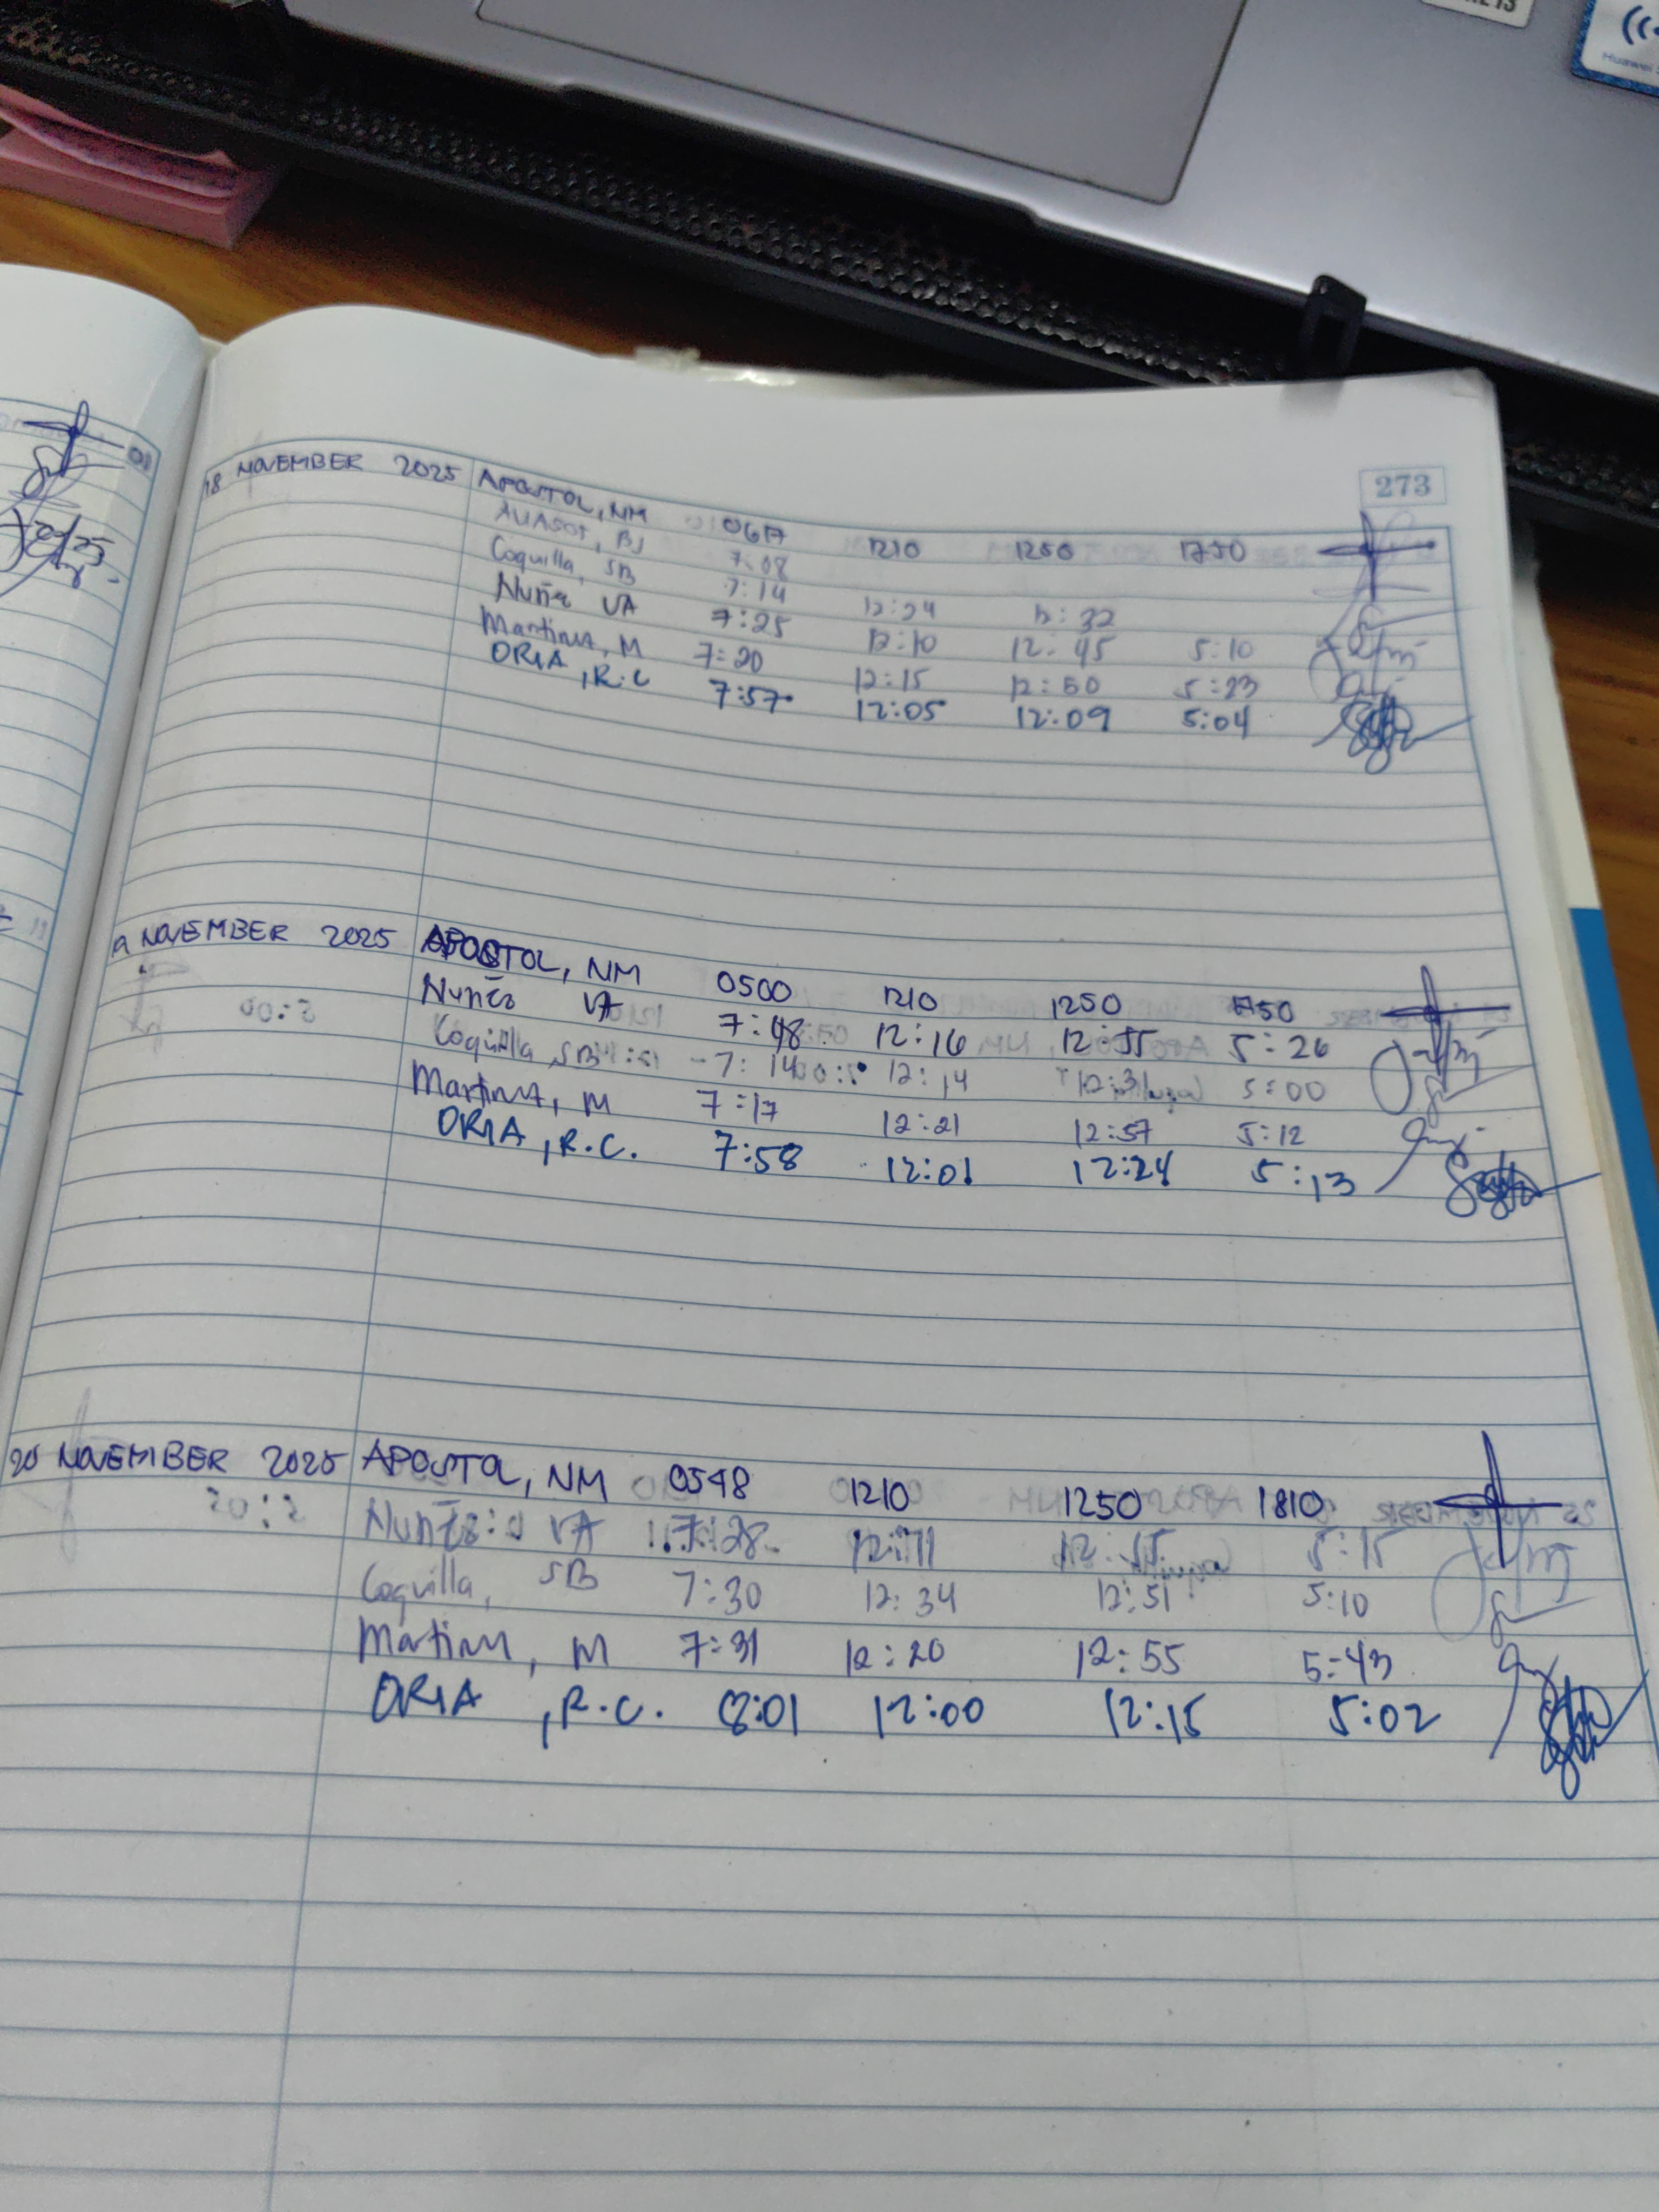 273
18 NOVEMBER 2025 APOSTOL, NM 0617 1210 1250 1750
7:08
Coquilla, SB 7:14 12:24 12:32
Nuñez VA 7:25 12:10 12:45 5:10
Martinez, M 7:20 12:15 12:50 5:23
ORIA, R.C 7:57 12:05 12:09 5:04
NOVEMBER 2025 APOSTOL, NM 0500 1210 1250 1750
Nuñez VA 7:48 12:16 12:55 5:26
Coquilla, SB 7:14 12:14 12:31 5:00
Martinez, M 7:17 12:21 12:57 5:12
ORIA, R.C. 7:58 12:01 12:24 5:13
20 NOVEMBER 2025 APOSTOL, NM 0548 1210 1250 1810
Nuñez VA 7:28 12:11 12:55 5:15
Coquilla, SB 7:30 12:34 12:51 5:10
Martinez, M 7:31 12:20 12:55 5:43
ORIA, R.C. 8:01 12:00 12:15 5:02